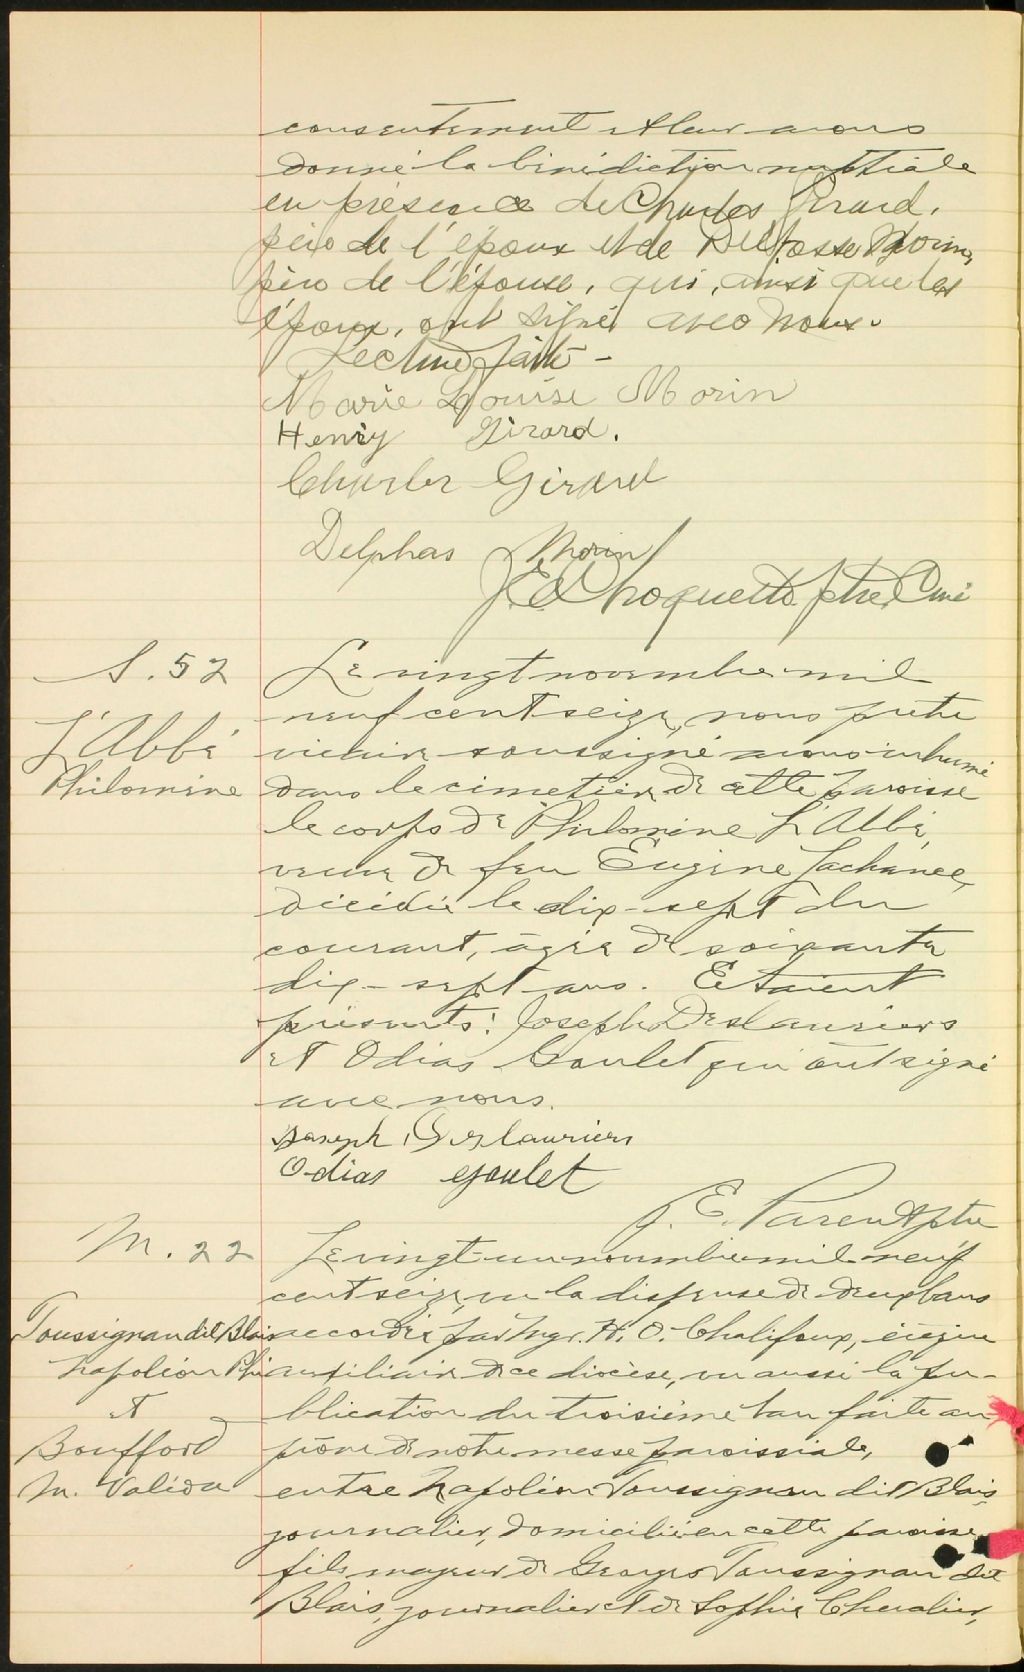 consentement et leur avons
donné la bénédiction nuptiale
en présence de Charles Girard,
père de l'époux et de Delfosse Morin,
père de l'épouse, qui, ainsi que les
époux, ont signé avec nous.
Lecture faite -
Marie Louise Morin
Henry Girard.
Charles Girard
Delphas Morin
J. E. Choquette ptre. Curé
S. 52
L'Abbé
Philomène
Le vingt novembre mil
neuf cent seize, nous prêtre
vicaire soussigné avons inhumé
dans le cimetière de cette paroisse
le corps de Philomène L'Abbé,
veuve de feu Eugène Lachance,
décédée le dix-sept du
courant, âgée de soixante
dix-sept ans. Etaient
présents: Joseph Deslauriers
et Odias Goulet qui ont signé
avec nous.
Joseph Deslauriers
Odias Goulet
J. E. Parent ptre
M. 22
Toussignan dit Blais
Napoléon Phi
et
Boufford
M. Valéda
Le vingt-un novembre mil neuf
cent seize, vu la dispense de deux bans
accordée par Mgr. H. O. Chalifoux, évêque
auxiliaire de ce diocèse, vu aussi la pu-
blication du troisième ban faite au
prône de notre messe paroissiale,
entre Napoléon Toussignan dit Blais,
journalier, domicilié en cette paroisse,
fils majeur de Georges Toussignan dit
Blais, journalier et de Sophie Chevalier,